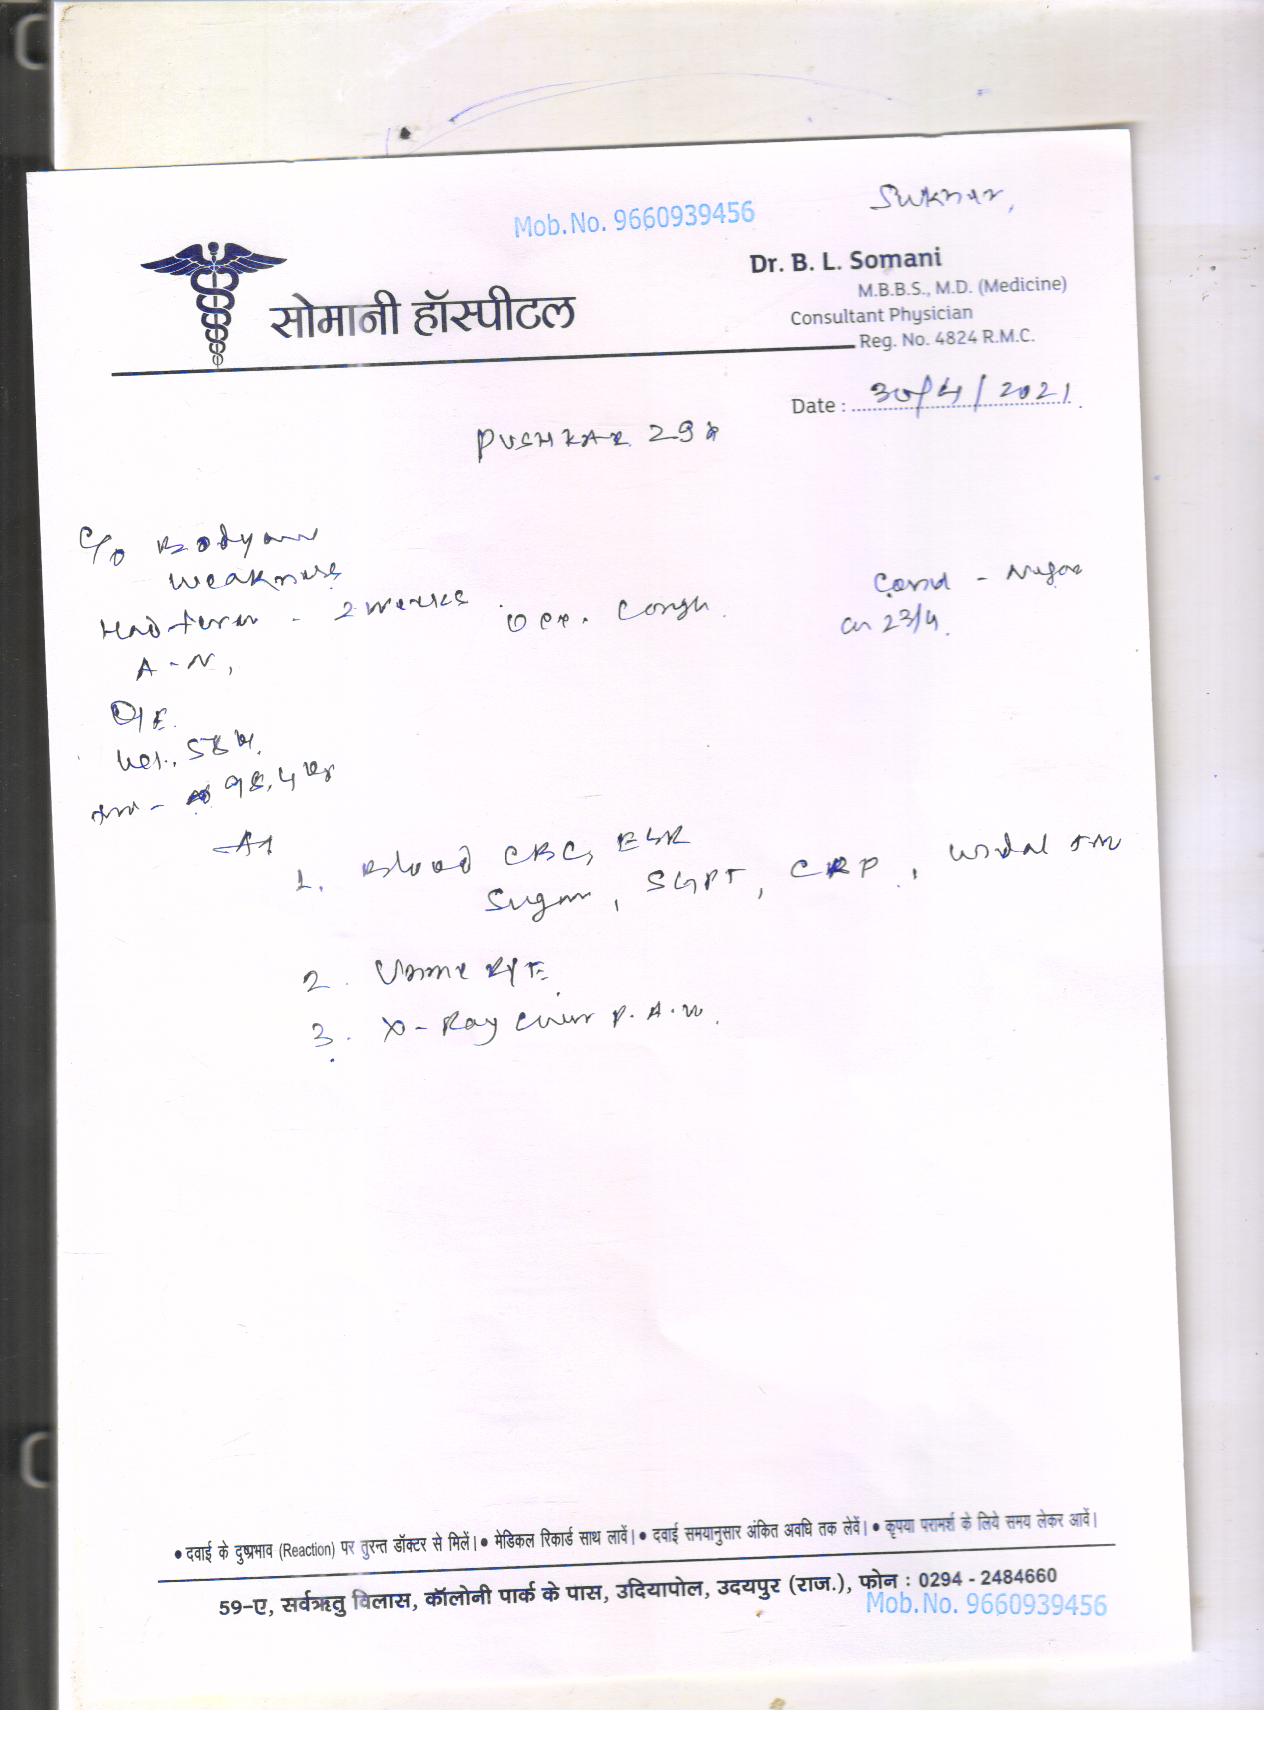 Sukhar,
Mob.No. 9660939456
सोमानी हॉस्पीटल
Dr. B. L. Somani
M.B.B.S., M.D. (Medicine)
Consultant Physician
Reg. No. 4824 R.M.C.
Date : 30/4/2021
PUSHKAR 29
C/o Body
Weakness
Had - 2 weeks Occ. Cough.
Covid -
on 23/4.
A - N,
O/E.
58
98.4
1. Blood CBC, ESR
Sugar, SGPT, CRP, Widal
2. Urine R/E.
3. X-Ray Chest P.A.
• दवाई के दुष्प्रभाव (Reaction) पर तुरन्त डॉक्टर से मिलें। • मेडिकल रिकार्ड साथ लावें। • दवाई समयानुसार अंकित अवधि तक लेवें। • कृपया परामर्श के लिये समय लेकर आवें।
59-ए, सर्वऋतु विलास, कॉलोनी पार्क के पास, उदियापोल, उदयपुर (राज.), फोन : 0294 - 2484660
Mob.No. 9660939456